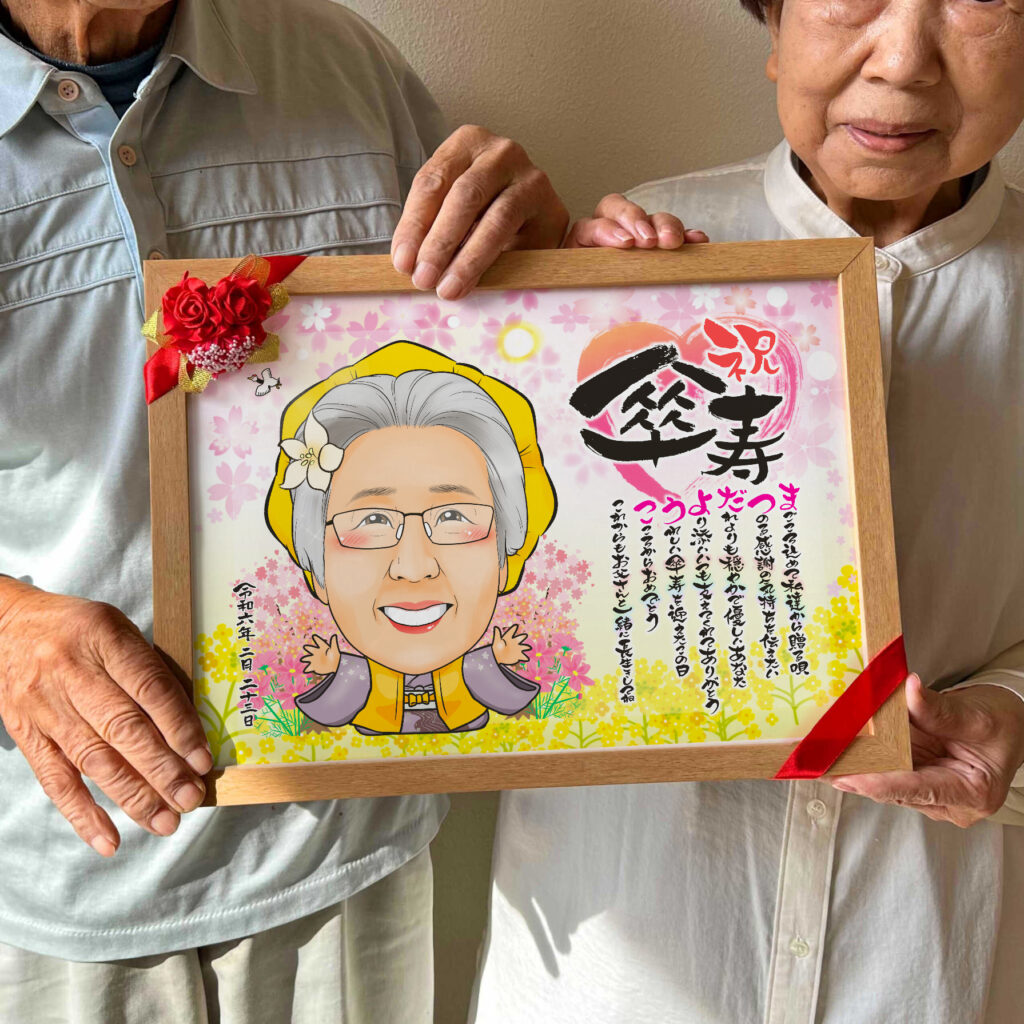 祝
傘寿
まごころ込めて私達から贈る唄
つのる感謝の気持ちを伝えたい
だれよりも穏やかで優しいあなた
より添いいつも支えてくれてありがとう
うれしい傘寿を迎えたこの日
こころからおめでとう
これからもお父さんと一緒に長生きしてね
令和六年 二月 二十三日